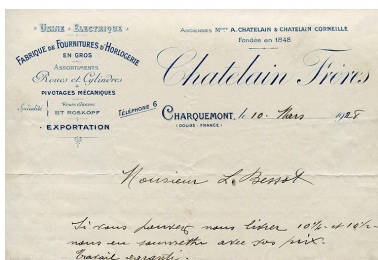 USINE ÉLECTRIQUE
FABRIQUE DE FOURNITURES D'HORLOGERIE
EN GROS
ASSORTIMENTS
Roues et Cylindres
PIVOTAGES MÉCANIQUES
Spécialité
ET ROSKOPF
EXPORTATION
TÉLÉPHONE 6
ANCIENNES Mons A. CHATELAIN & CHATELAIN CORNEILLE
Fondée en 1848
Chatelain Frères
CHARQUEMONT, le 10 Mars 1928
(DOUBS-FRANCE)
Monsieur L. Bessot
Si vous pouvez nous livrer 10½ et 18½
nous en soumettre avec vos prix.
Travail garanti.